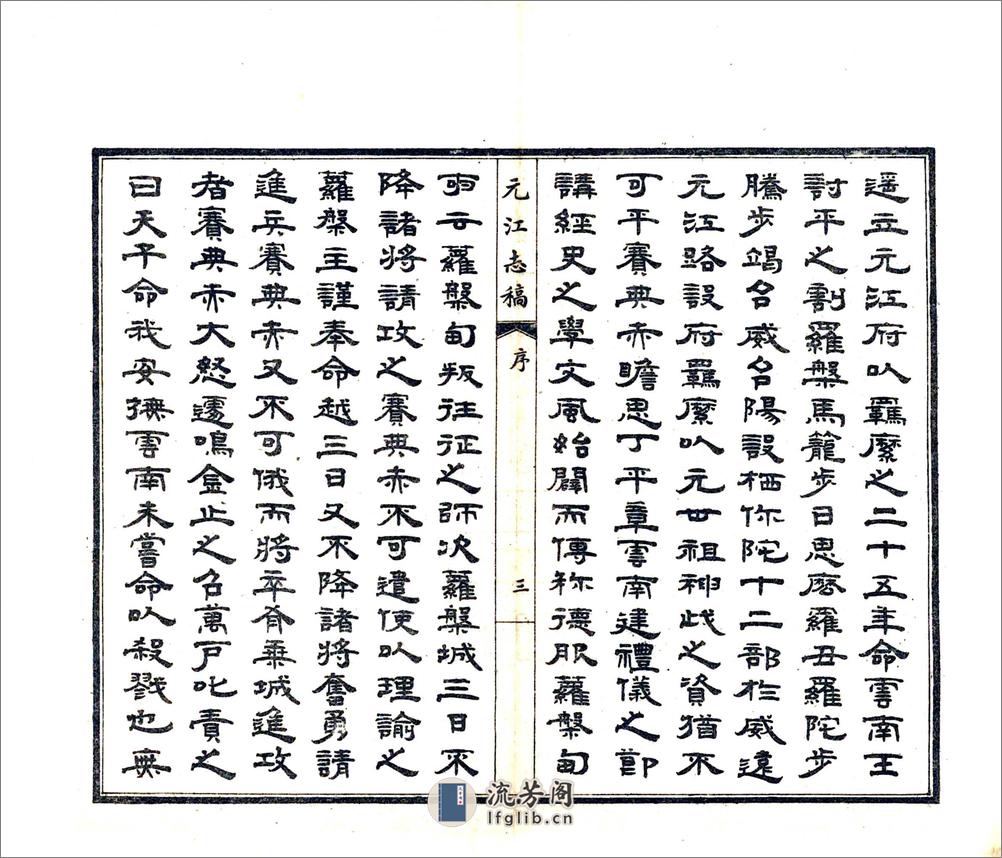 遥立元江府以羈縻之二十五年命雲南王
討平之割羅槃馬籠步日思麽羅丑羅陀步
騰步竭台威台陽設栖你陀十二部於威遠
元江路設府羈縻以元世祖神武之資猶不
可平賽典赤瞻思丁平章雲南建禮儀之節
講經史之學文風始闢而傳称德服蘿槃甸
元江志稿
序
三
事云蘿槃甸叛往征之師次蘿槃城三日不
降諸將請攻之賽典赤不可遣使以理諭之
蘿槃主謹奉命越三日又不降諸將奮勇請
進兵賽典赤又不可俄而將卒有乘城進攻
者賽典赤大怒遽鳴金止之召萬戶叱責之
曰天子命我安撫雲南未嘗命以殺戮也無
流芳阁
lfglib.cn